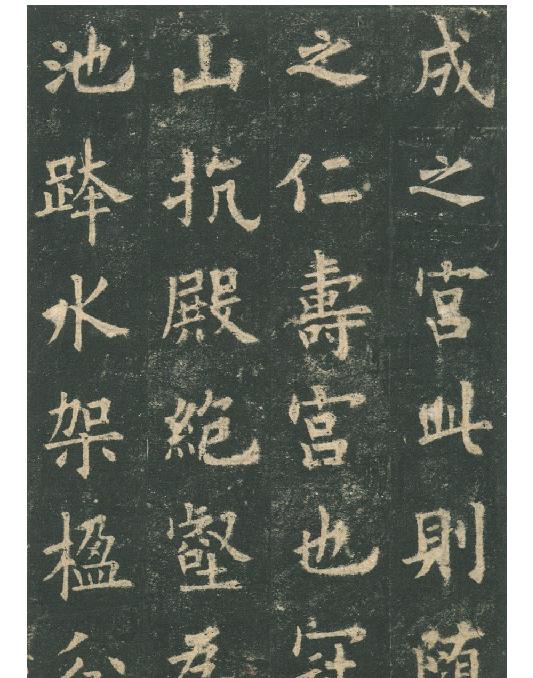 成之宮此則随
之仁壽宮也冠
山抗殿絕壑為
池跨水架楹分